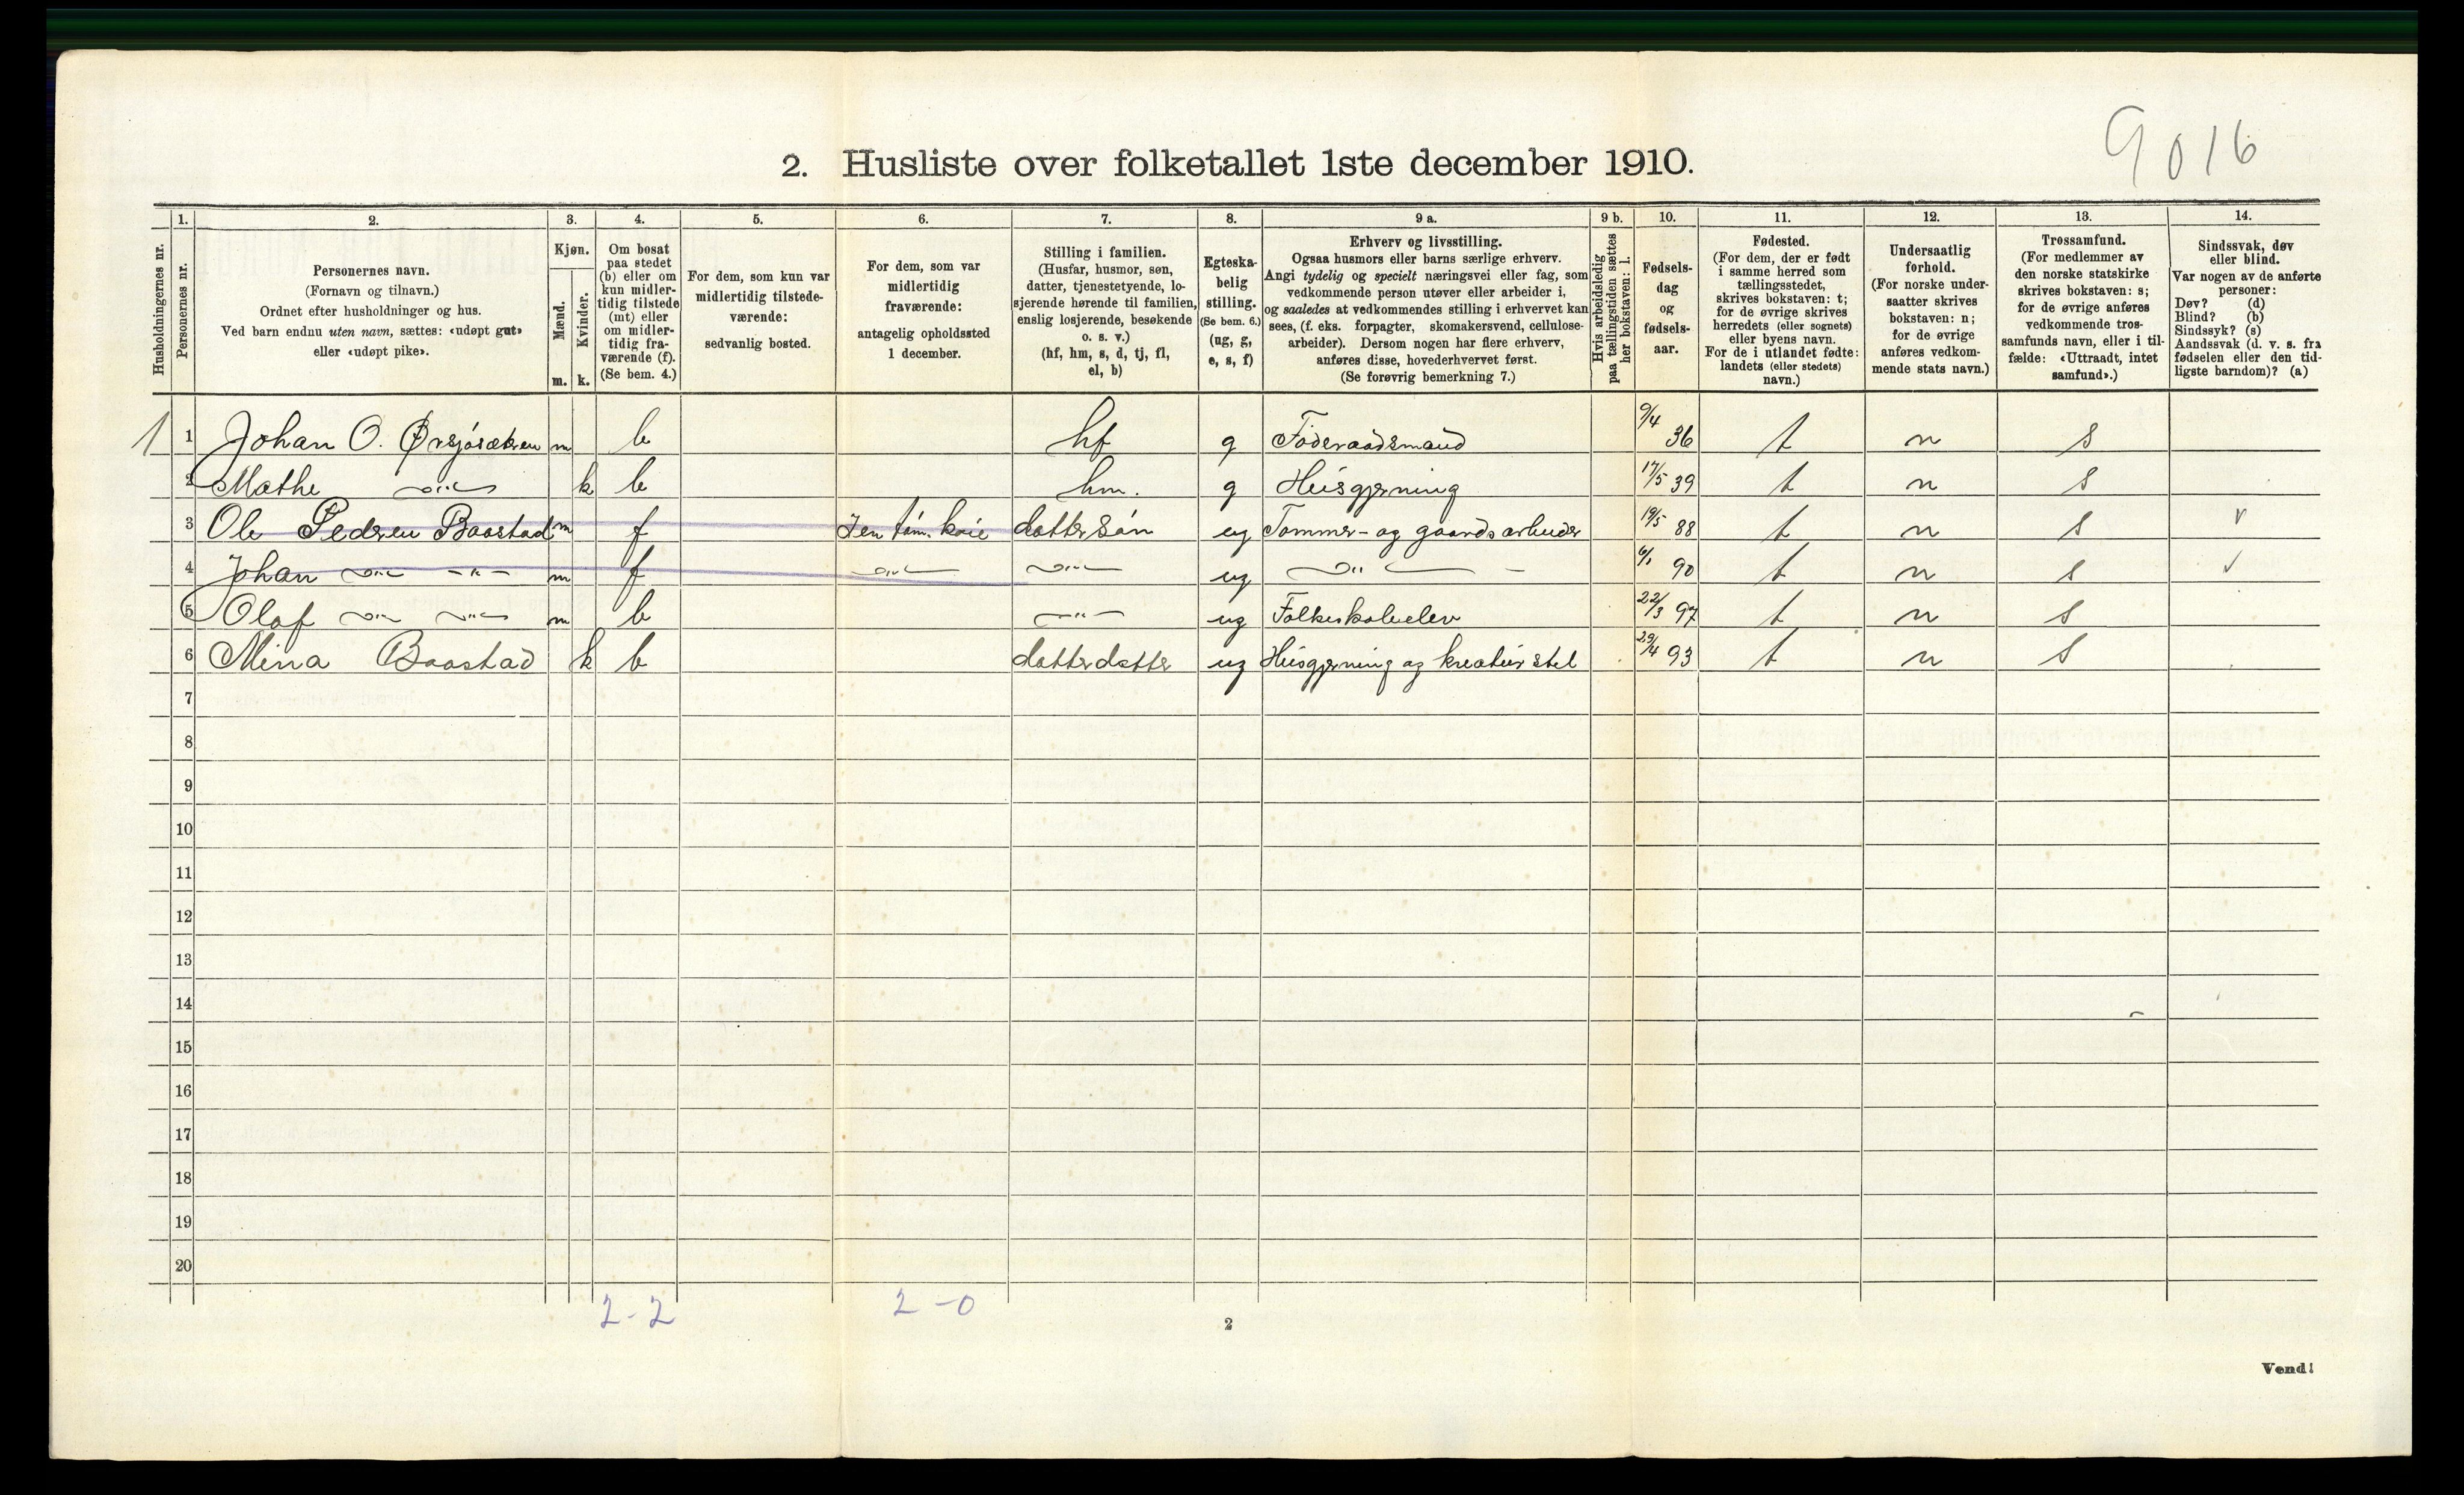 9016
2. Husliste over folketallet 1ste december 1910.
Husholdningernes nr.
1. Personernes nr.
2. Personernes navn.
(Fornavn og tilnavn.)
Ordnet efter husholdninger og hus.
Ved barn endnu uten navn, sættes: «udøpt gut»
eller «udøpt pike».
3. Kjøn.
Mænd. m.
Kvinder. k.
4. Om bosat
paa stedet
(b) eller om
kun midler-
tidig tilstede
(mt) eller
om midler-
tidig fra-
værende (f).
(Se bem. 4.)
5. For dem, som kun var
midlertidig tilstede-
værende:
sedvanlig bosted.
6. For dem, som var
midlertidig
fraværende:
antagelig opholdssted
1 december.
7. Stilling i familien.
(Husfar, husmor, søn,
datter, tjenestetyende, lo-
sjerende hørende til familien,
enslig losjerende, besøkende
o. s. v.)
(hf, hm, s, d, tj, fl,
el, b)
8. Egteska-
belig
stilling.
(Se bem. 6.)
(ug, g,
e, s, f)
9 a. Erhverv og livsstilling.
Ogsaa husmors eller barns særlige erhverv.
Angi tydelig og specielt næringsvei eller fag, som
vedkommende person utøver eller arbeider i,
og saaledes at vedkommendes stilling i erhvervet kan
sees, (f. eks. forpagter, skomakersvend, cellulose-
arbeider). Dersom nogen har flere erhverv,
anføres disse, hovederhvervet først.
(Se forøvrig bemerkning 7.)
9 b. Hvis arbeidsledig
paa tællingstiden sættes
her bokstaven: l.
10. Fødsels-
dag
og
fødsels-
aar.
11. Fødested.
(For dem, der er født
i samme herred som
tællingsstedet,
skrives bokstaven: t;
for de øvrige skrives
herredets (eller sognets)
eller byens navn.
For de i utlandet fødte:
landets (eller stedets)
navn.)
12. Undersaatlig
forhold.
(For norske under-
saatter skrives
bokstaven: n;
for de øvrige
anføres vedkom-
mende stats navn.)
13. Trossamfund.
(For medlemmer av
den norske statskirke
skrives bokstaven: s;
for de øvrige anføres
vedkommende tros-
samfunds navn, eller i til-
fælde: «Uttraadt, intet
samfund».)
14. Sindssvak, døv
eller blind.
Var nogen av de anførte
personer:
Døv? (d)
Blind? (b)
Sindssyk? (s)
Aandssvak (d. v. s. fra
fødselen eller den tid-
ligste barndom)? (a)
1 1 Johan O. Ørsjøsætren m b hf g Føderaadsmand 9/4 36 t n s
2 Mathe —"— k b hm. g Husgjerning 17/5 39 t n s
3 Ole Pedersen Baastad m f dattersøn ug Tømmer- og gaardsarbeider 19/5 88 t n s v
4 Johan —"— —"— m f —"— —"— ug —"— — 6/1 90 t n s v
5 Olaf —"— —"— m b —"— ug Folkeskoleelev 22/3 97 t n s
6 Mina Baastad k b datterdatter ug Husgjerning og kreaturstel 29/4 93 t n s
7
8
9
10
11
12
13
14
15
16
17
18
19
20
2-2 2-0
2
Vend!